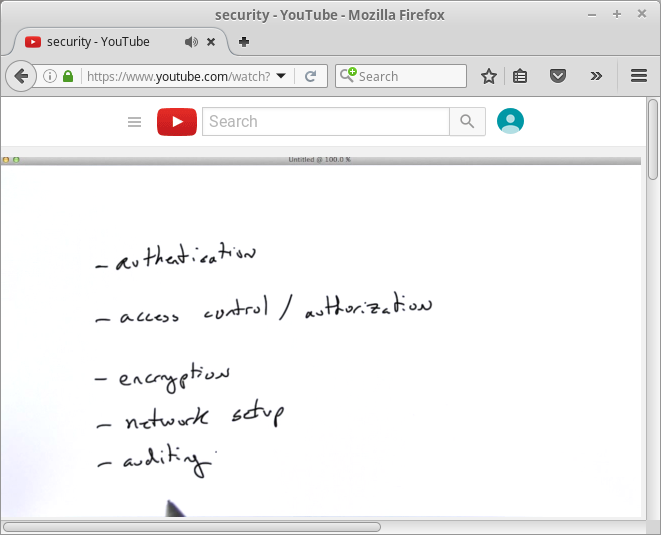 security - YouTube - Mozilla Firefox
security - YouTube
https://www.youtube.com/watch?
Search
Search
Untitled @ 100.0 %
- authentication
- access control / authorization
- encryption
- network setup
- auditing